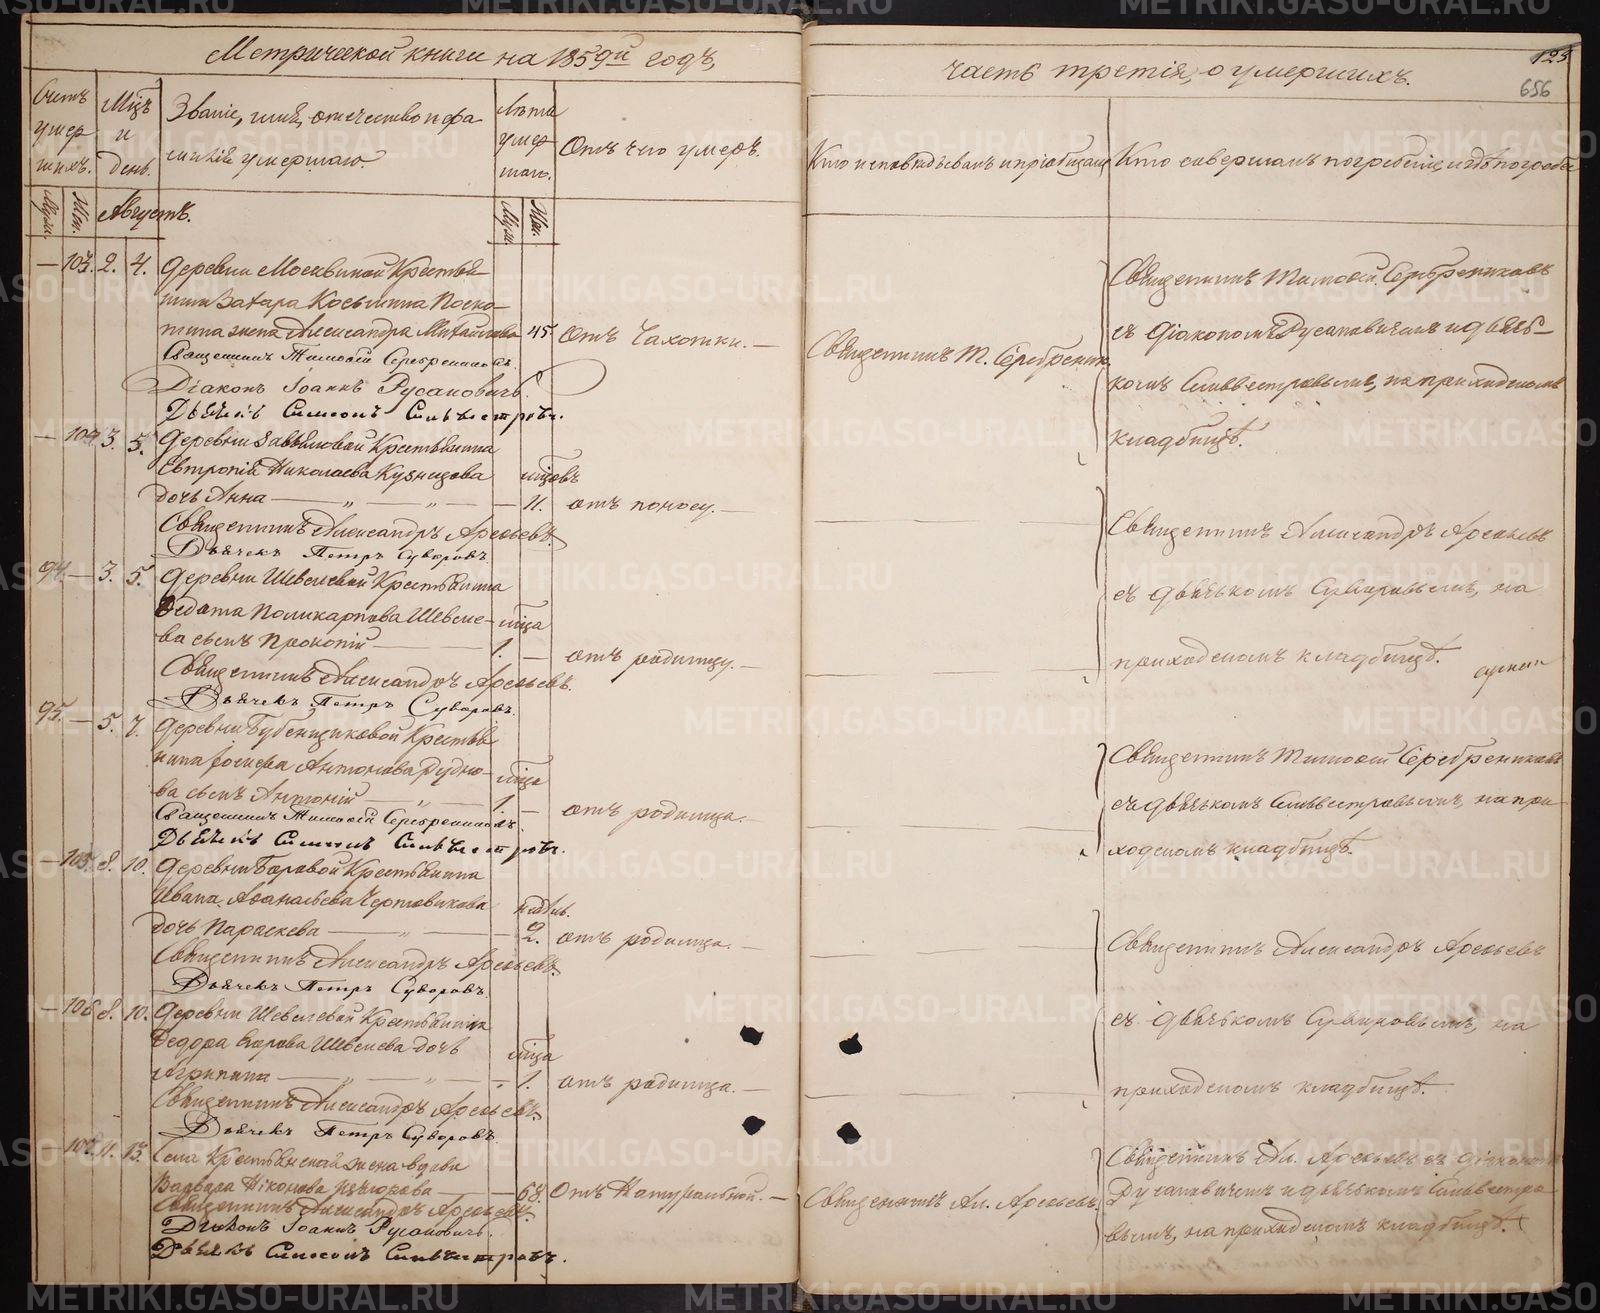 Метрической книги на 1859й годъ,
часть третія, о умершихъ.
123
656
Счетъ умер шихъ.
Мцъ и день.
Званіе, имя, отечество и фа
милія умершаго
Лѣта умер шаго.
Отъ чего умеръ.
Кто исповѣдывалъ и пріобщалъ
Кто совершалъ погребеніе, и гдѣ погребе
Муж.
Жен.
Августъ.
Муж.
Жен.
— 103. 2. 4. Деревни Москвиной Крестья-
нина Захара Косьмина Поско-
тина жена Александра Михайлова 45. отъ Чахотки. —
Священникъ Тимоѳей Серебренниковъ.
Діаконъ Іоаннъ Русановичъ.
Дьячекъ Симеонъ Сильвестровъ.
Священникъ Т. Серебренник.
Священникъ Тимоѳей Серебрениковъ
съ діакономъ Русановичемъ и дьяч-
комъ Сильвестровымъ, на приходскомъ
кладбищѣ.
— 104 3. 5. Деревни Крестьянина
Евтропія Николаева Кузнецова
мцовъ
дочь Анна — „ — „ — 11. отъ поносу. —
Священникъ Александръ
Дьячекъ Петръ Суворовъ.
Священникъ Александръ
съ дьячькомъ Суворовымъ, на
приходскомъ кладбищѣ.
94. — 3. 5. Деревни Шевелевой Крестьянина
Ѳедота Поликарпова Шевеле-
мца
ва сынъ Прокопій — 1. — отъ родимцу. —
Священникъ Александръ
Дьячекъ Петръ Суворовъ.
95. — 5. 7. Деревни Бубенщиковой Крестья
нина Іосифа Антонова Рудно-
мца
ва сынъ Антоній — „ — 1. — отъ родимца. —
Священникъ Тимоѳей Серебренниковъ.
Дьячекъ Симеонъ Сильвестровъ.
Священникъ Тимоѳей Серебрениковъ
съ дьячькомъ Сильвестровымъ, на при-
ходскомъ кладбищѣ.
— 105. 8. 10. Деревни Боровой Крестьянина
Ивана Аѳанасьева Чертовикова
недѣль.
дочь Параскева — „ — 2. отъ родимца. —
Священникъ Александръ
Дьячекъ Петръ Суворовъ.
Священникъ Александръ
съ дьячькомъ Суворовымъ, на
приходскомъ кладбищѣ.
— 106 8. 10. Деревни Шевелевой Крестьянина
Ѳедора Егорова Шевелева дочь
мца
Агрипина — „ — „ — 1. отъ родимца. —
Священникъ Александръ
Дьячекъ Петръ Суворовъ.
— 107. 11. 13. Села Крестьянская жена вдова
Варвара Никонова — 68. Отъ Натуральной. —
Священникъ Александръ
Діаконъ Іоаннъ Русановичъ.
Дьячекъ Симеонъ Сильвестровъ.
Священникъ Ал.
Священникъ Ал. съ діакономъ
Русановичемъ и дьячькомъ Сильвестро-
вымъ, на приходскомъ кладбищѣ.
METRIKI.GASO-URAL.RU